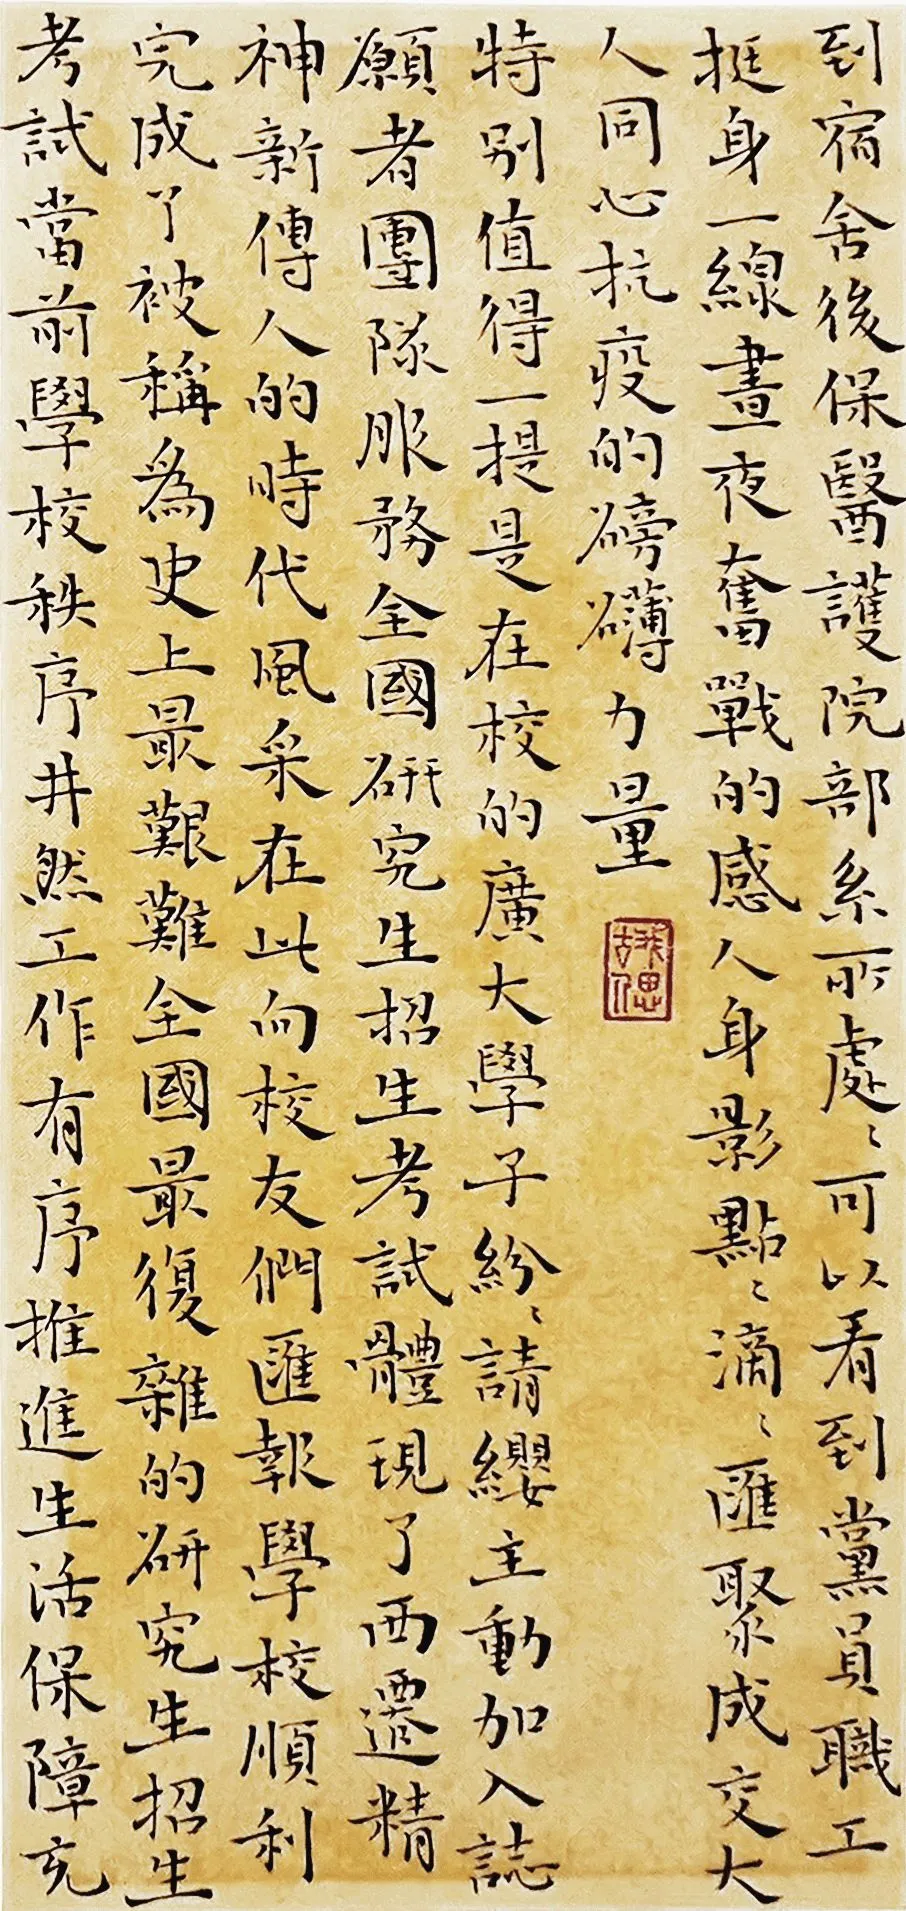 到宿舍後保醫護院部系所處〻可以看到黨員職工
挺身一線晝夜奮戰的感人身影點〻滴〻匯聚成交大
人同心抗疫的磅礴力量
我思古人
特别值得一提是在校的廣大學子紛〻請纓主動加入誌
願者團隊服務全國研究生招生考試體現了西遷精
神新傳人的時代風采在此向校友們匯報學校順利
完成了被稱為史上最艱難全國最復雜的研究生招生
考試當前學校秩序井然工作有序推進生活保障充